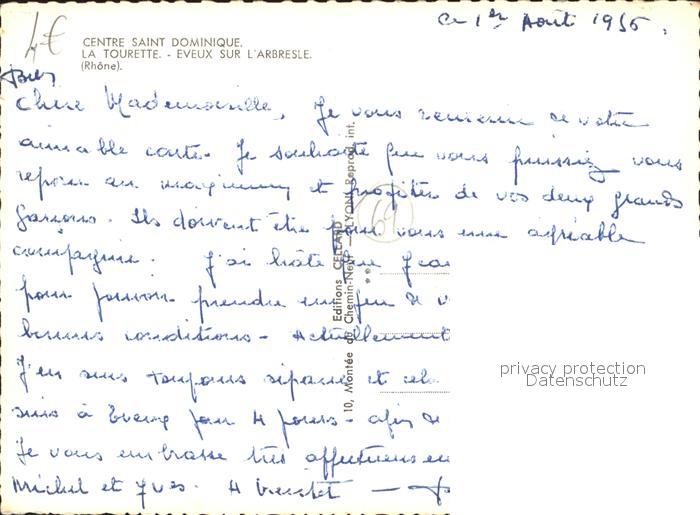 4€
ce 1er Août 1956.
CENTRE SAINT DOMINIQUE.
LA TOURETTE. - EVEUX SUR L'ARBRESLE.
(Rhône).
Chère Mademoiselle, Je vous remercie de votre
aimable carte. Je souhaite que vous puissiez vous
reposer au maximum et profiter de vos deux grands
garçons. Ils doivent être pour vous une agréable
compagnie. J'ai hâte que
pour pouvoir prendre un peu de
bonnes conditions - Actuellement
J'en suis toujours séparée et
suis à Eveux pour 4 jours - afin de
Je vous embrasse très affectueusement
Michel et Yves. A bientôt —
Editions CELLARD
10, Montée de Chemin-Neuf — LYON Reprod. int.
69
privacy protection
Datenschutz